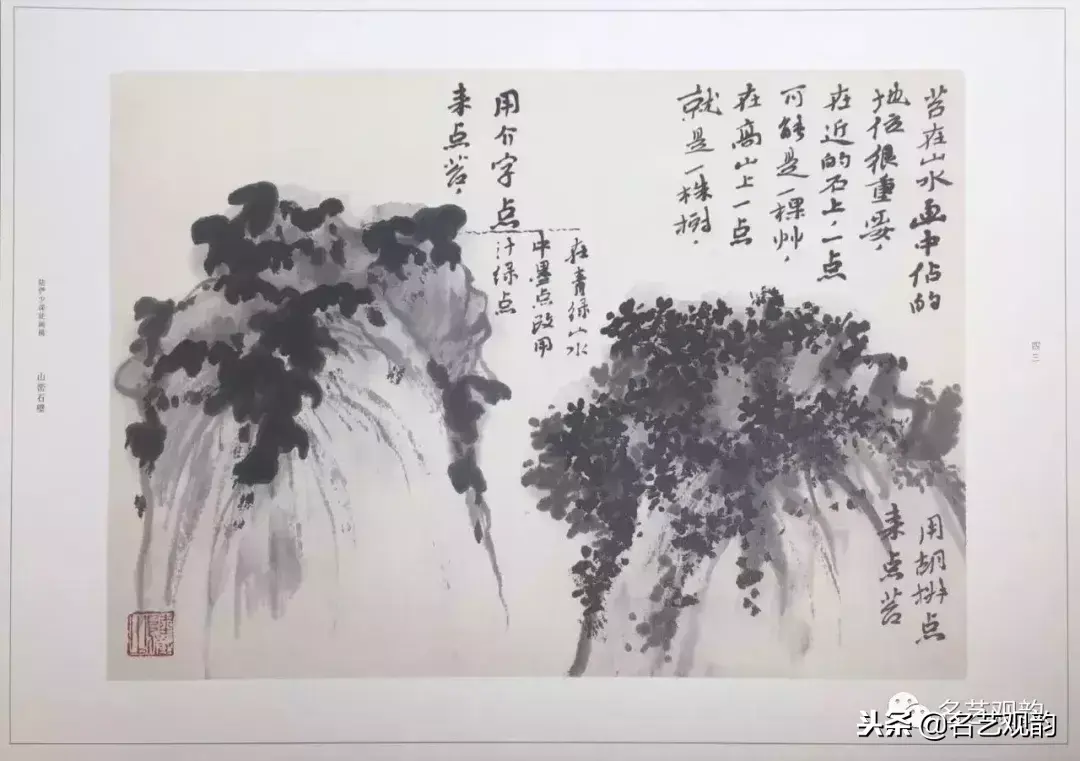 苔在山水画中佔的
地位很重要，
在近的石上，一点
可能是一棵艸，
在高山上一点
就是一株树，
用介字点
来点苔，
在青绿山水
中墨点改用
汁绿点
用胡椒点
来点苔
山峦石壁
四三
名艺观韵
头条 @名艺观韵